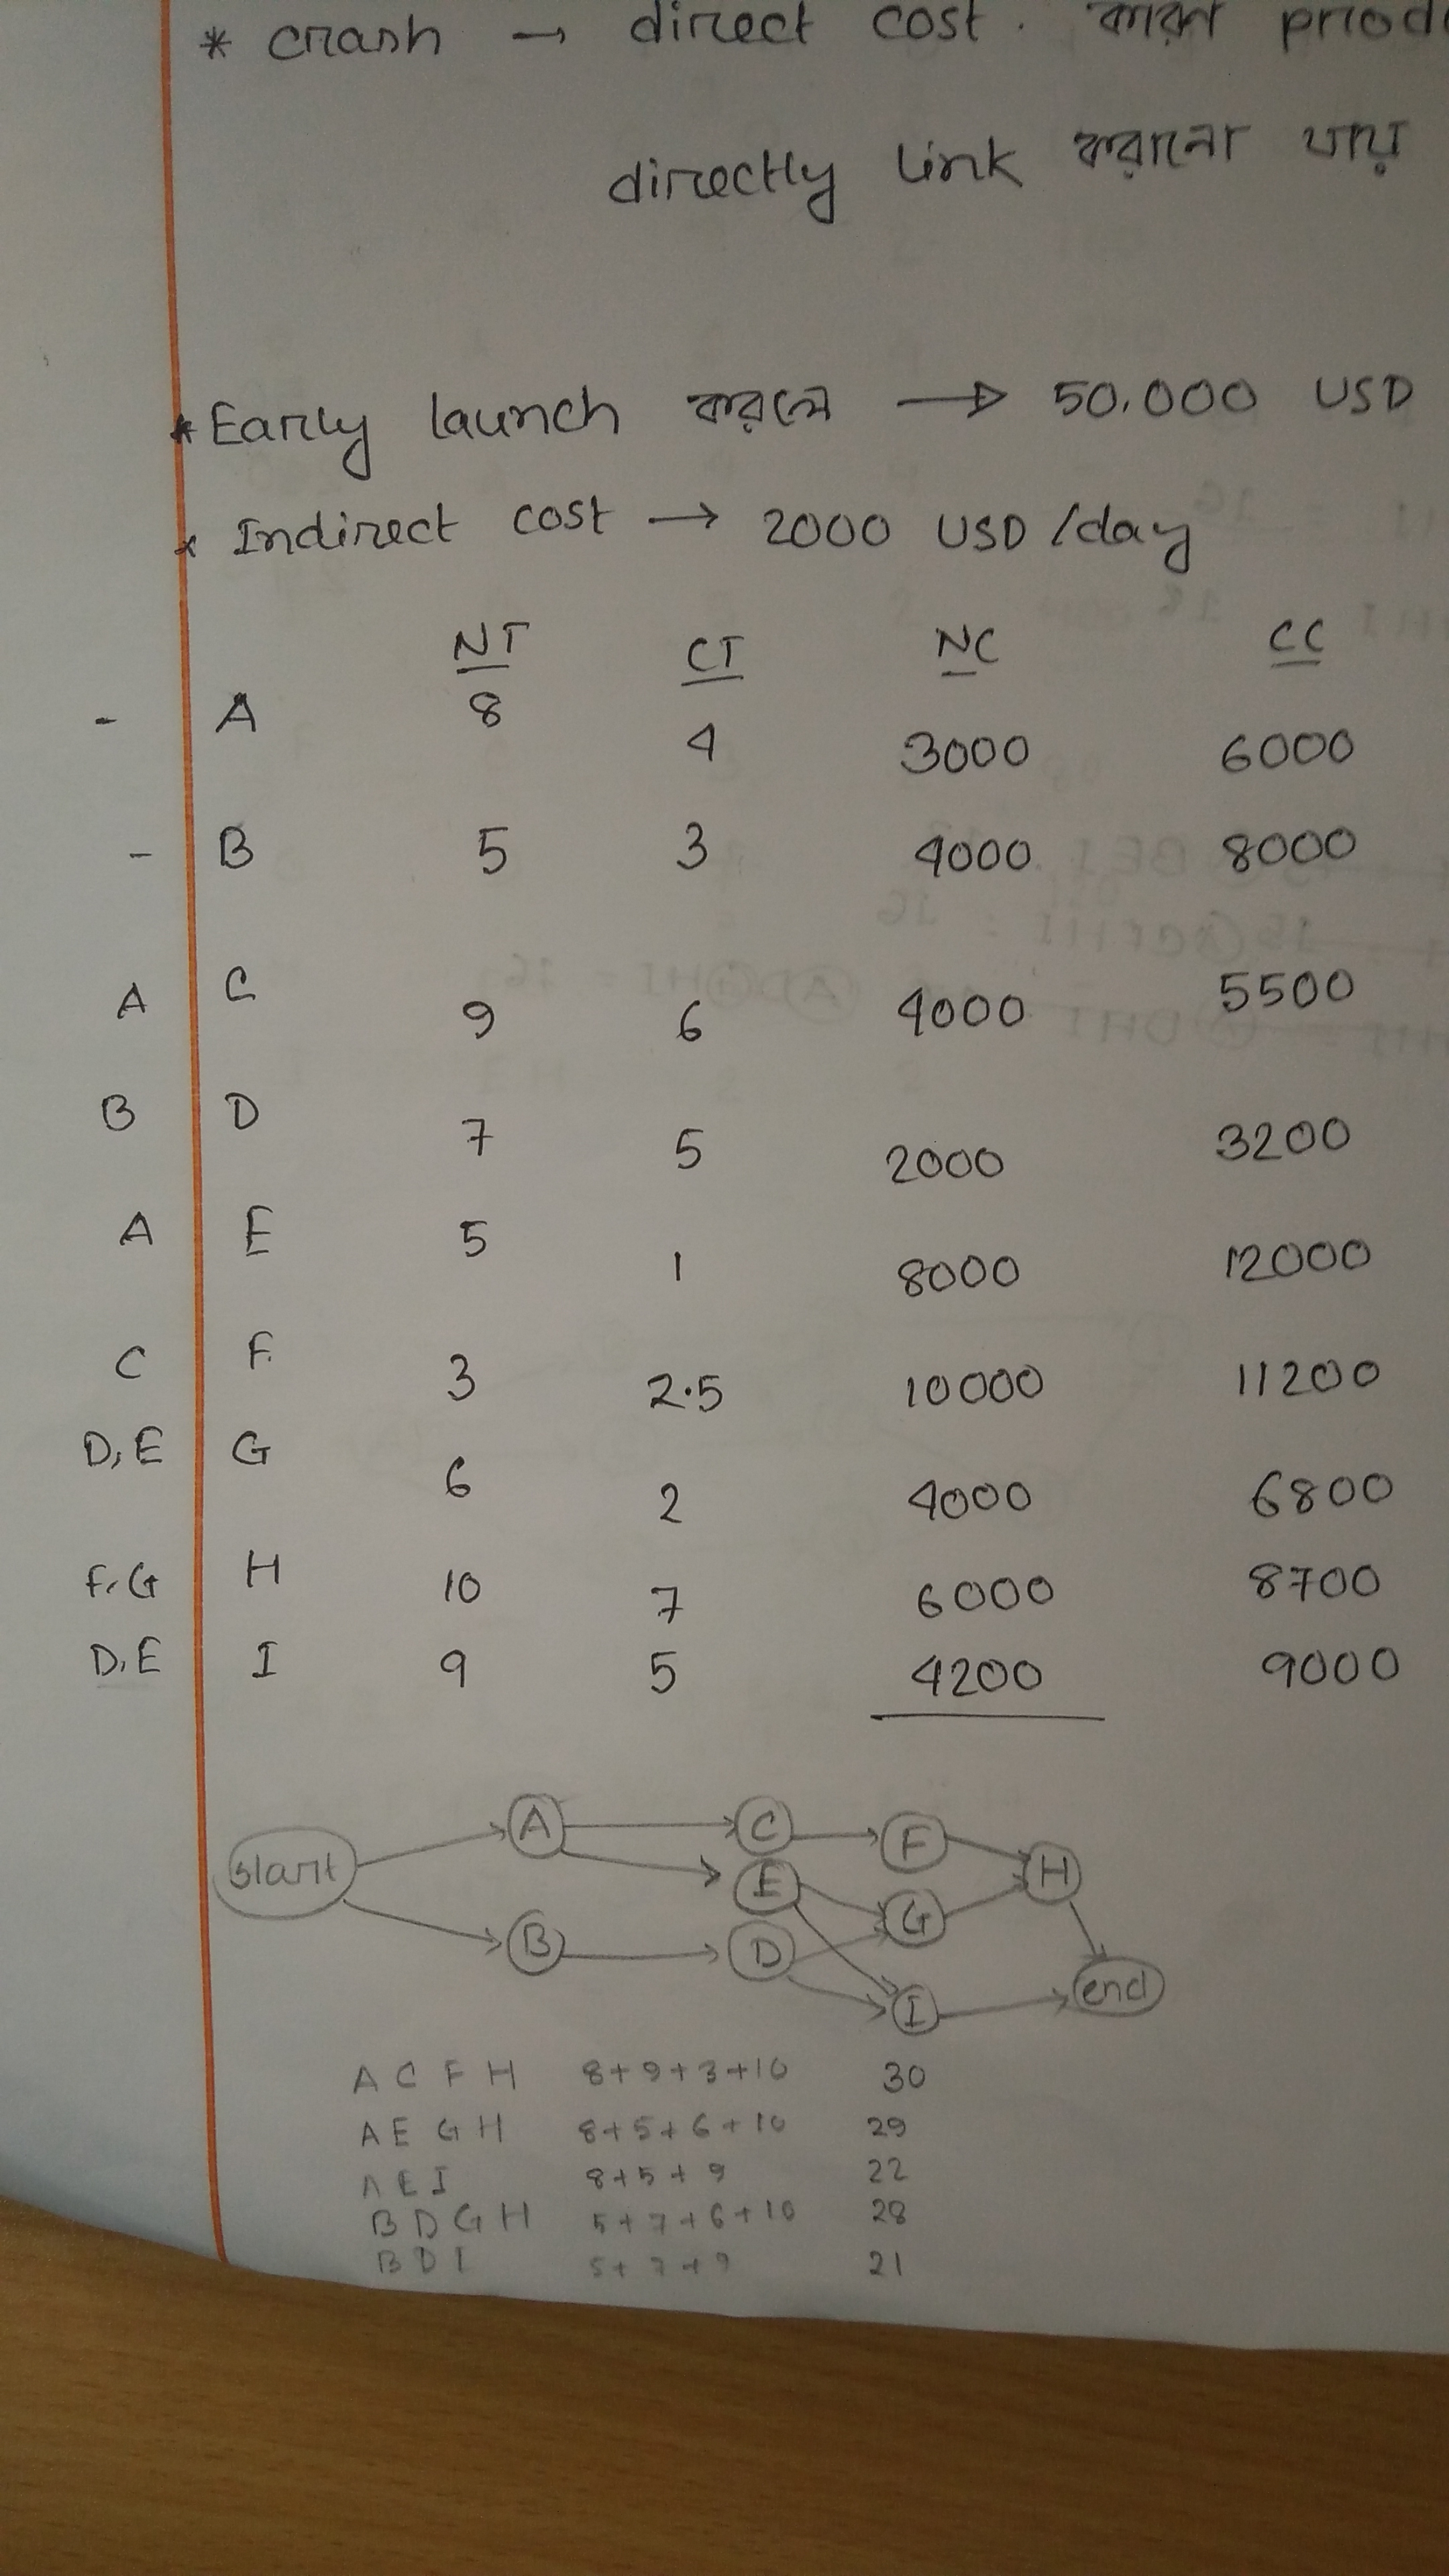 * crash → direct cost. কারণ
directly link করানো যায়
* Early launch করলে → 50,000 USD
* Indirect cost → 2000 USD /day
NT CT NC CC
- A 8 4 3000 6000
- B 5 3 4000 8000
A C 9 6 4000 5500
B D 7 5 2000 3200
A E 5 1 8000 12000
C F 3 2.5 10000 11200
D,E G 6 2 4000 6800
F,G H 10 7 6000 8700
D,E I 9 5 4200 9000
start A C F H
E
B D G
I end
A C F H 8+9+3+10 30
A E G H 8+5+6+10 29
A E I 8+5+9 22
B D G H 5+7+6+10 28
B D I 5+7+9 21